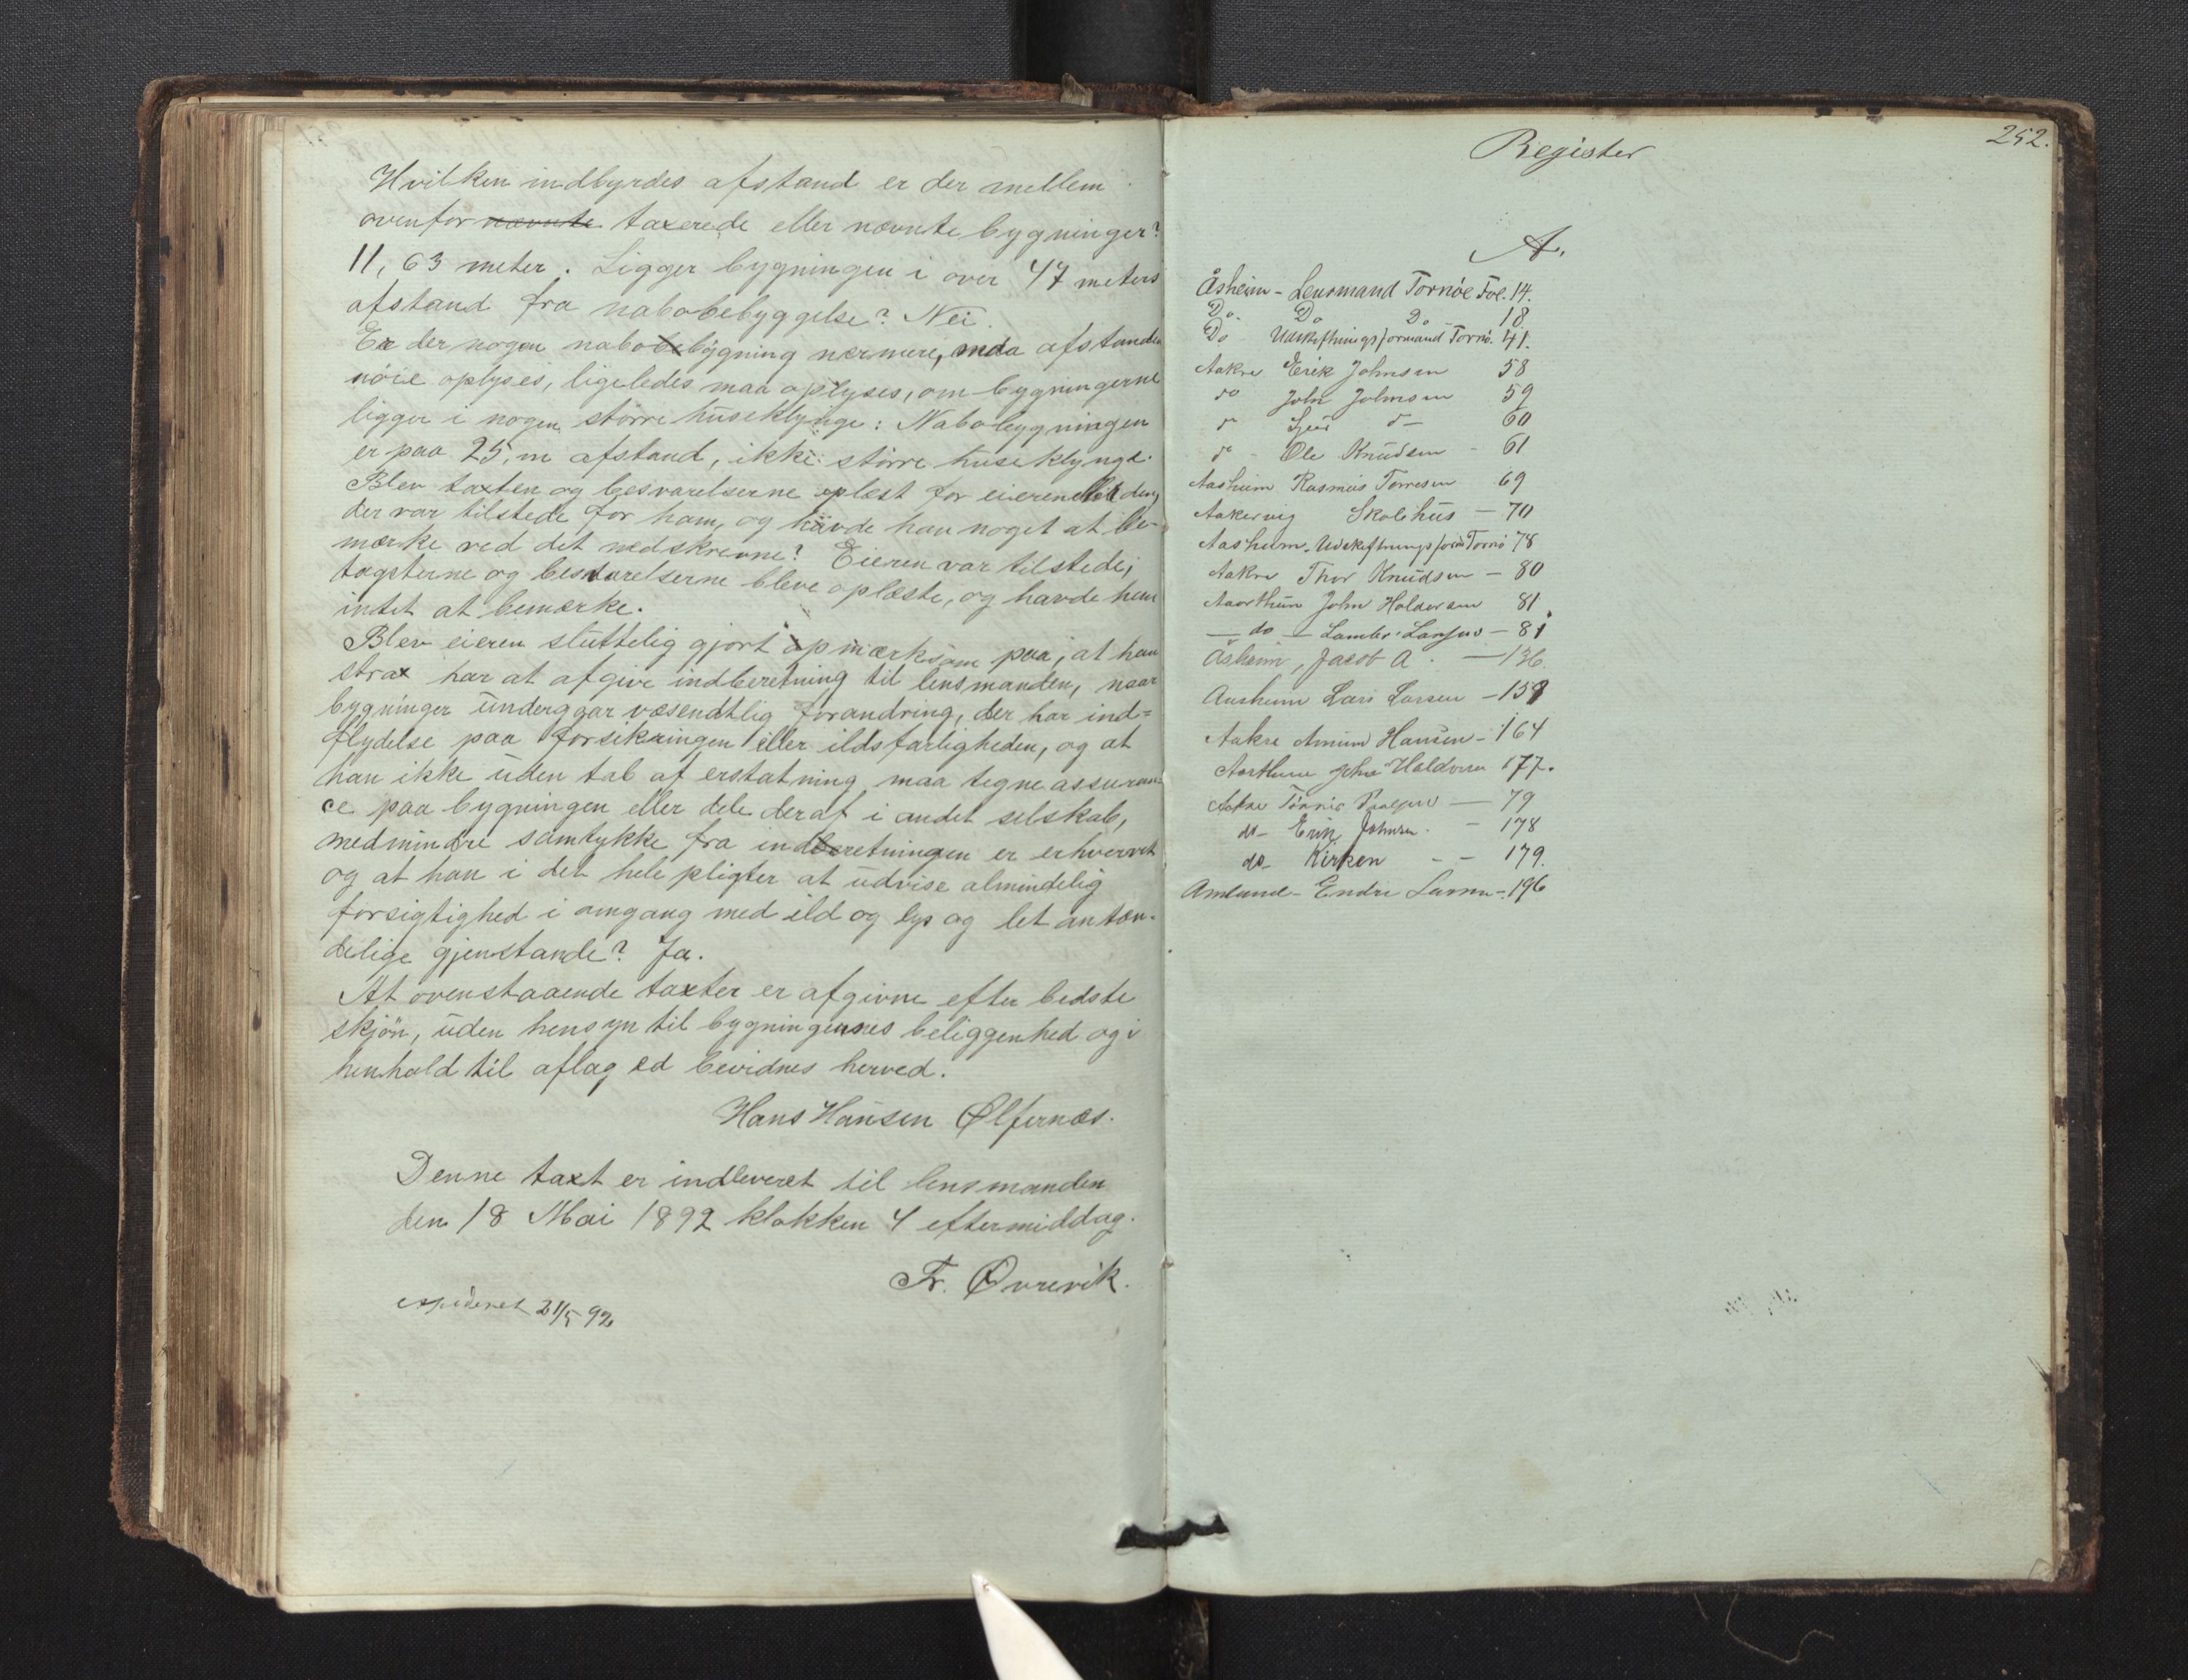 Hvilken indbyrdes afstand er der mellem
ovenfor nævnte taxerede eller nævnte bygninger?
11,63 meter. Ligger bygningen i over 47 meters
afstand fra nabobebyggelse? Nei.
Er der nogen nabobebygning nærmere, maa afstanden
nöie oplyses, ligeledes maa oplyses, om bygningerne
ligger i nogen större huseklynge: Nabobygningen
er paa 25, m afstand, ikke större huseklynge.
Blev taxten og besvarelserne oplæst for eieren eller den,
der var tilstede for ham, og havde han noget at be-
mærke ved det nedskrevne? Eieren var tilstede;
taxterne og besvarelserne bleve oplæste, og havde han
intet at bemærke.
Blev eieren sluttelig gjort opmærksom paa, at han
strax har at afgive indberetning til lensmanden, naar
bygninger undergaar væsendtlig forandring, der har ind-
flydelse paa forsikringen eller ildsfarligheden, og at
han ikke uden tab af erstatning maa tegne assuran-
ce paa bygningen eller dele deraf i andet selskab,
medmindre samtykke fra indberetningen er erhvervet
og at han i det hele pligter at udvise almindelig
forsigtighed i omgang med ild og lys og let antæn-
delige gjenstande? Ja.
At ovenstaaende taxter er afgivne efter bedste
skjön, uden hensyn til bygningernes beliggenhed og i
henhold til aflag ed bevidnes herved.
Hans Hansen Ølfernæs.
Denne taxt er indleveret til lensmanden
den 18 Mai 1892 klokken 4 eftermiddag.
Fr. Øvrevik.
expideret 21/5 92
252.
Register
A.
Åsheim - Lensmand Tornöe Fol. 14.
Do. Do Do 18
Do Udskiftningsformand Tornö. 41.
Aakre Erik Johnsen 58
do John Johnsen 59
do Sjur do 60
do - Ole Knudsen - 61
Aasheim Rasmus Torresen 69
Aakervig Skolehus - 70
Aasheim. Udskiftningsform Tornö 78
Aakre Thor Knudsen - 80
Aarthun John Haldorsen 81
- do - Lambr. Larsen - 81
Åsheim, Jacob A. - 136.
Aasheim Lars Larsen - 158
Aakre Amund Hansen - 164
Aarthun John Haldorsen 177.
Aakre Tönnis Paalsen - 79
do - Erik Johnsen. - 178
do - Kirken - - 179.
Amlund - Endre Larsen - 196